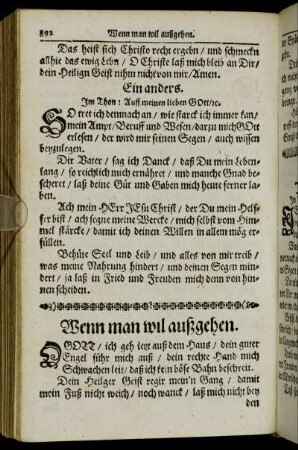 892 Wenn man wil außgehen.
Das heist sich Christo recht ergebn / und schmeckn
allhie das ewig Lebn / O Christe laß mich bleib an Dir /
dein Heilign Geist nihm nicht von mir / Amen.
Ein anders.
Im Thon: Auff meinen lieben GOtt / ꝛc.
SO tret ich demnach an / wie starck ich immer kan /
mein Ampt / Beruff und Wesen / darzu mich GOtt
erlesen / der wird mir seinen Segen / auch wissen
beyzulegen.
Dir Vater / sag ich Danck / daß Du mein Leben-
lang / so reichlich mich ernähret / und manche Gnad be-
scheret / laß deine Güt und Gaben mich heute ferner la-
ben.
Ach mein HErr JEsu Christ / der Du mein Helf-
fer bist / ach segne meine Wercke / mich selbst vom Him-
mel stärcke / damit ich deinen Willen in allem mög er-
füllen.
Behüte Seel und Leib / und alles von mir treib /
was meine Nahrung hindert / und deinen Segen min-
dert / ja laß in Fried und Freuden mich denn von hin-
nen scheiden.
Wenn man wil außgehen.
O GOTT / ich geh jetzt auß dem Hauß / dein guter
Engel führ mich auß / dein rechte Hand mich
Schwachen leit / daß ich kein böse Bahn beschreit.
Dein Heilger Geist regir mein'n Gang / damit
mein Fuß nicht weich / noch wanck / laß mich nicht bey
den